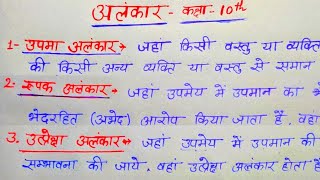 अलंकार - कक्षा 10th
1- उपमा अलंकार → जहां किसी वस्तु या व्यक्ति
की किसी अन्य व्यक्ति या वस्तु से समान
2- रूपक अलंकार → जहां उपमेय में उपमान का
भेदरहित (अभेद) आरोप किया जाता है, वहां
3. उत्प्रेक्षा अलंकार → जहां उपमेय में उपमान की
सम्भावना की जाये, वहां उत्प्रेक्षा अलंकार होता है